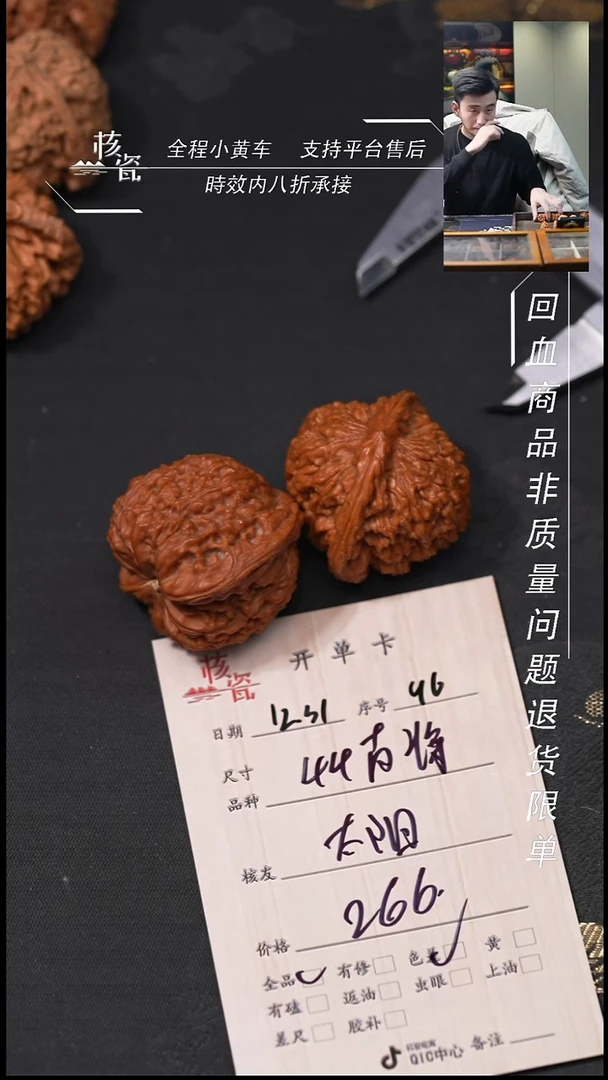 核瓷
全程小黄车 支持平台售后
時效内八折承接
回血商品非质量问题退货限单
核瓷 开单卡
日期 12-31 序号 46
尺寸
品种 44苹将
核友 太阳
价格 266.
全品 有修 色差 黄
有磕 返油 虫眼 上油
差尺 胶补
抖音电商
QIC中心 备注